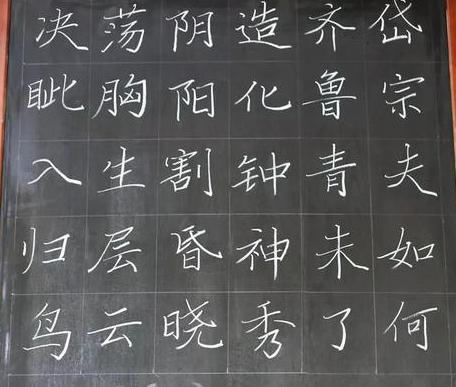 岱宗夫如何
齐鲁青未了
造化钟神秀
阴阳割昏晓
荡胸生层云
决眦入归鸟